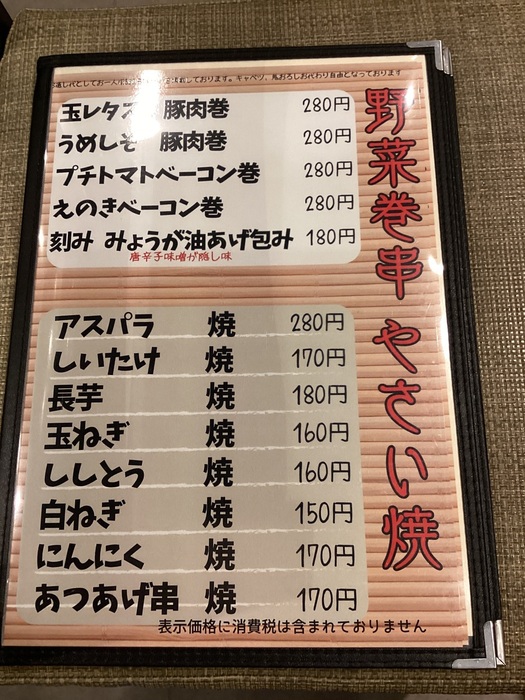 通し代としてお一人様 しております。キャベツ、鬼おろしお代わり自由となっております
野菜巻串 やさい焼
玉レタス 豚肉巻 280円
うめしそ 豚肉巻 280円
プチトマトベーコン巻 280円
えのきベーコン巻 280円
刻み みょうが油あげ包み 180円
唐辛子味噌が隠し味
アスパラ 焼 280円
しいたけ 焼 170円
長芋 焼 180円
玉ねぎ 焼 160円
ししとう 焼 160円
白ねぎ 焼 150円
にんにく 焼 170円
あつあげ串 焼 170円
表示価格に消費税は含まれておりません